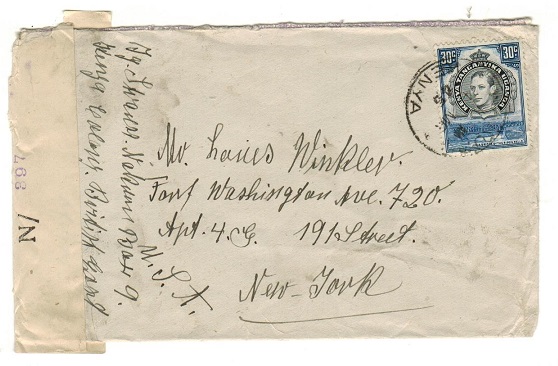 30c 30c
KENYA TANGANYIKA UGANDA
KENYA
Mr. Louis Winkler.
Fort Washington Ave. 720.
Apt. 4. G. 191 Street.
U. S. A.
New-York
Nakuru Box 9.
Kenya Colony. British East
N/
793